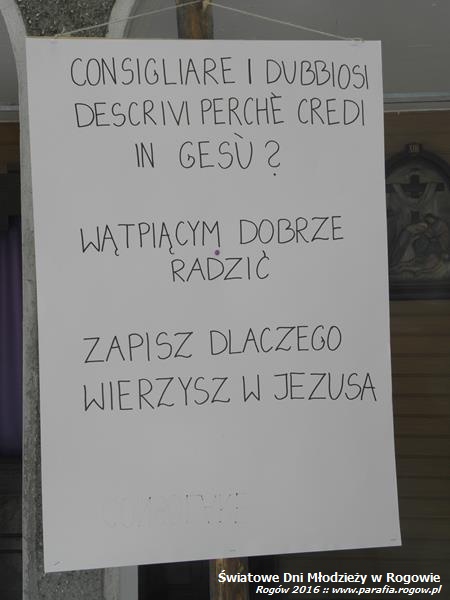 CONSIGLIARE I DUBBIOSI
DESCRIVI PERCHÈ CREDI
IN GESÙ?
WĄTPIĄCYM DOBRZE
RADZIĆ
ZAPISZ DLACZEGO
WIERZYSZ W JEZUSA
XIII
Światowe Dni Młodzieży w Rogowie
Rogów 2016 :: www.parafia.rogow.pl